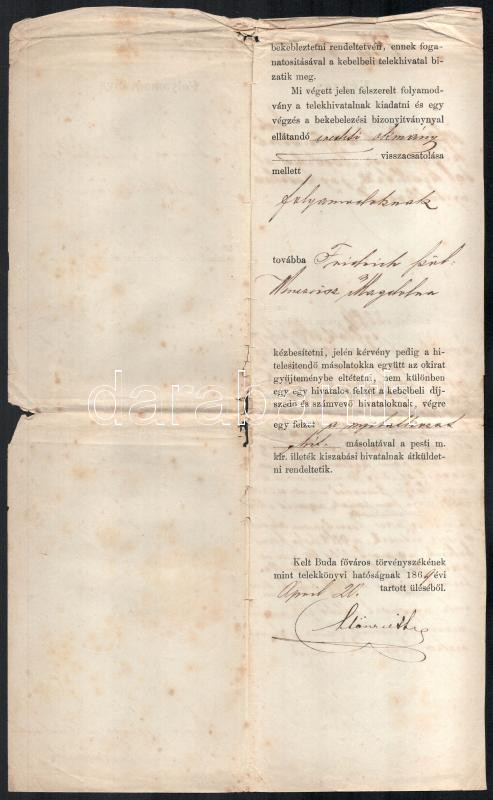 bekebleztetni rendeltetvén, ennek foga-
natositásával a kebelbeli telekhivatal bi-
zatik meg.
Mi végett jelen felszerelt folyamod-
vány a telekhivatalnak kiadatni és egy
végzés a bekebelezési bizonyitványnyal
ellátandó eredeti okmány
visszacsatolása
mellett
folyamodoknak
továbba Fridrich
Magdolna
kézbesitetni, jelén kérvény pedig a hi-
telesitendő másolatokka együtt az okirat
gyüjteménybe eltétetni, nem különben
egy egy hivatalos felzet a kebelbeli dij-
szedő és számvevő hivataloknak, végre
egy felzet a
másolatával a pesti m.
kir. illeték kiszabási hivatalnak átküldet-
ni rendeltetik.
Kelt Buda főváros törvényszékének
mint telekkönyvi hatóságnak 186 évi
April 20. tartott üléséből.
darabanth